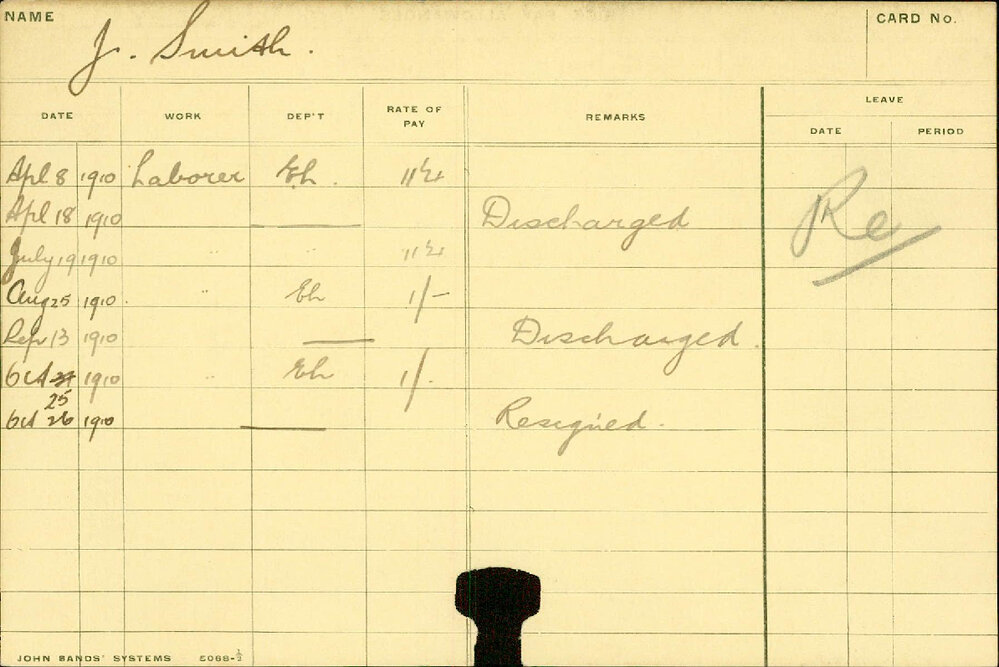 NAME J. Smith. CARD No.
DATE WORK DEP'T RATE OF PAY REMARKS LEAVE
DATE PERIOD
Apl 8 1910 Laborer Eh. Re
Apl 18 1910 — Discharged
July 19 1910 "
Aug 25 1910 " Eh 1/-
Sep 13 1910 — Discharged.
Oct 1910 " Eh 1/-
25
Oct 26 1910 — Resigned.
JOHN SANDS' SYSTEMS 5068-½